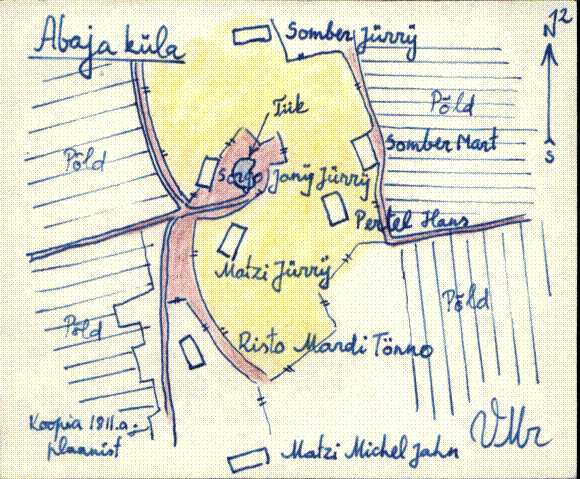 12
Abaja küla
Somber Jürrÿ
N
Tiik
Põld
Põld
Somber Mart
S
Sargo Janÿ Jürrÿ
Pertel Hans
Matzi Jürrÿ
Põld
Põld
Risto Mardi Tönno
Koopia 1811.a.
plaanist
Matzi Michel Jahn